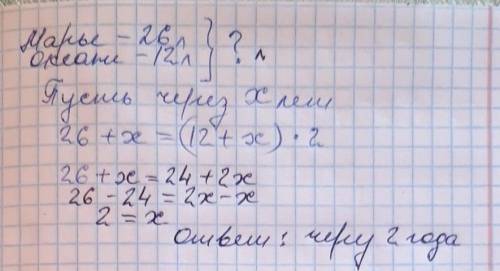 Марье - 26л } ? л
Оксане - 12л
Пусть через x лет
26 + x = (12 + x) · 2
26 + x = 24 + 2x
26 - 24 = 2x - x
2 = x
ответ: через 2 года